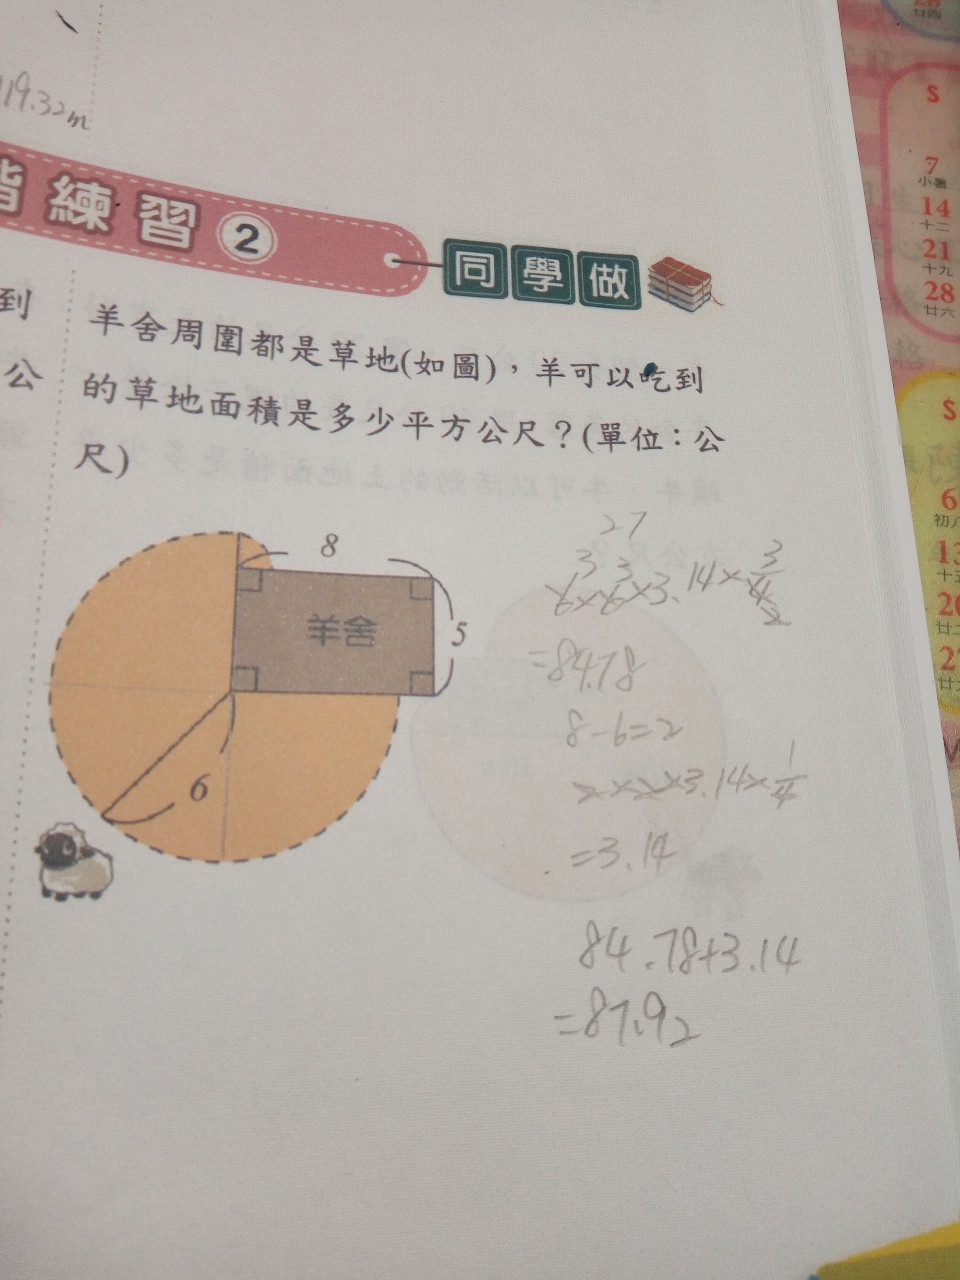 119.32m
練習 2 同學做
到
公
羊舍周圍都是草地(如圖)，羊可以吃到
的草地面積是多少平方公尺？(單位：公
尺)
8
羊舍
5
6
27
3 3 3
6×6×3.14×3/4
2
=84.78
8-6=2
2×2×3.14×1/4
=3.14
84.78+3.14
=87.92
廿四
S
7
小暑
14
十二
21
十九
28
廿六
S
6
初八
13
20
27